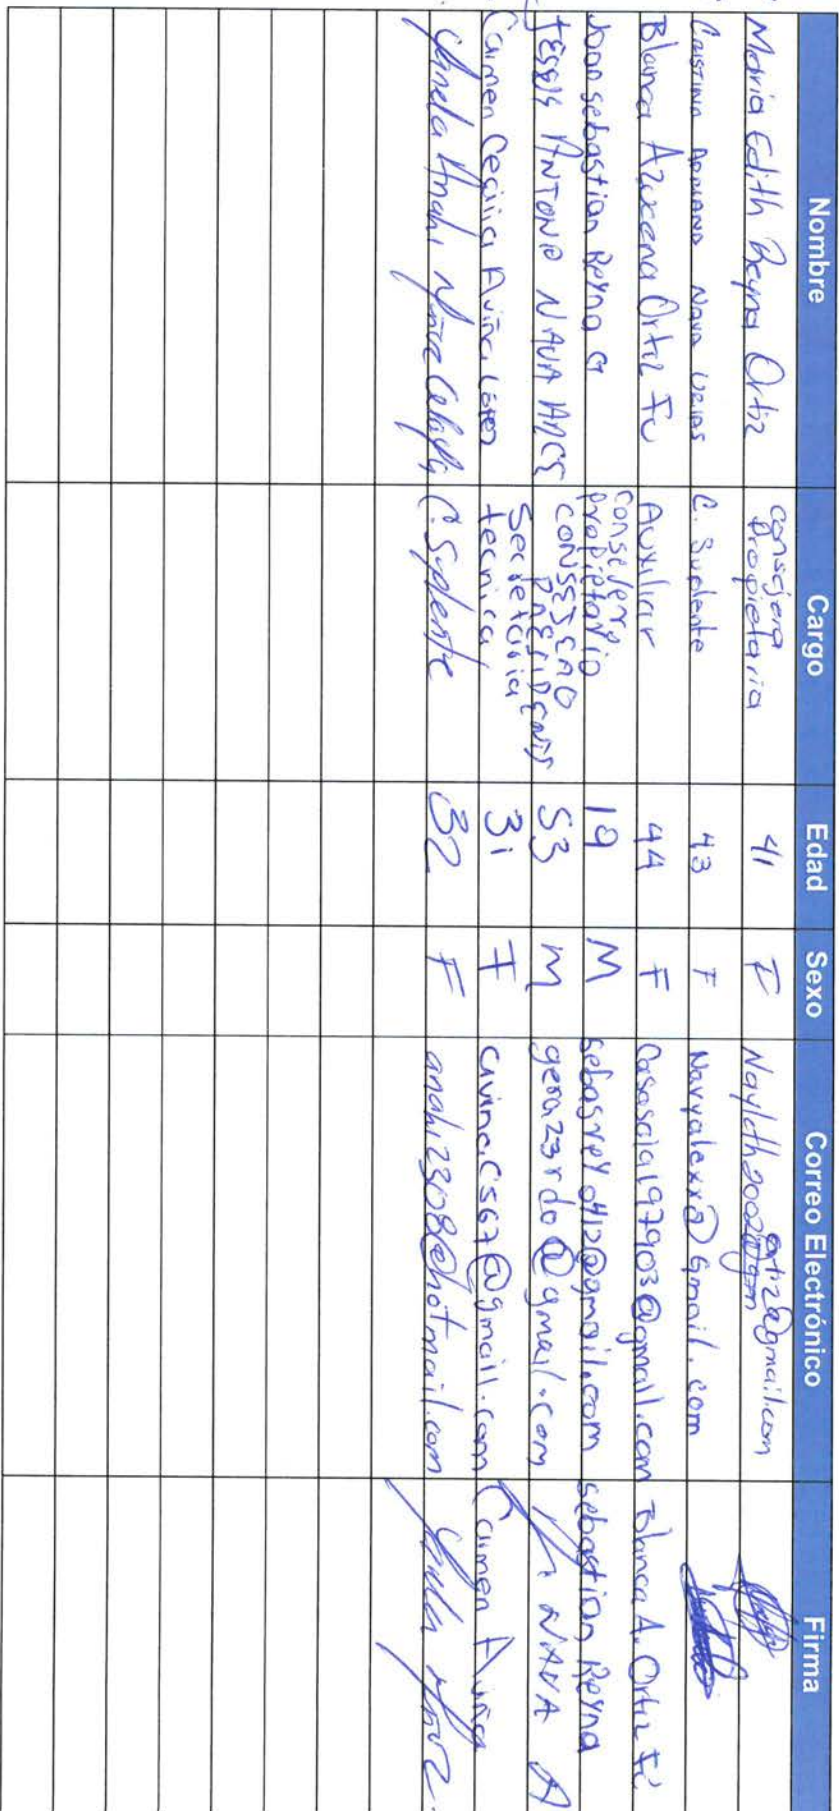 Nombre Cargo Edad Sexo Correo Electrónico Firma
Maria Edith Reyna Ortiz consejera propietaria 41 F Nayloth2002@gm ortiz@gmail.com
Cristina Adriana Nava C. Suplente 43 F Navyalexx@gmail.com
Blanca Azucena Ortiz Fc Auxiliar 44 F Casasola197903@gmail.com Blanca A. Ortiz Fc
Joan sebastian Reyna G Consejero propietario 19 M sebasrey0412@gmail.com sebastian Reyna
JESUS ANTONIO NAVA CONSEJERO PRESIDENTE 53 M gera23rdo@gmail.com NAVA A
Carmen Cecilia Aviña López Secretaria tecnica 31 F avinac567@gmail.com Carmen Aviña
Anahi C. Suplente 32 F anahi2308@hotmail.com